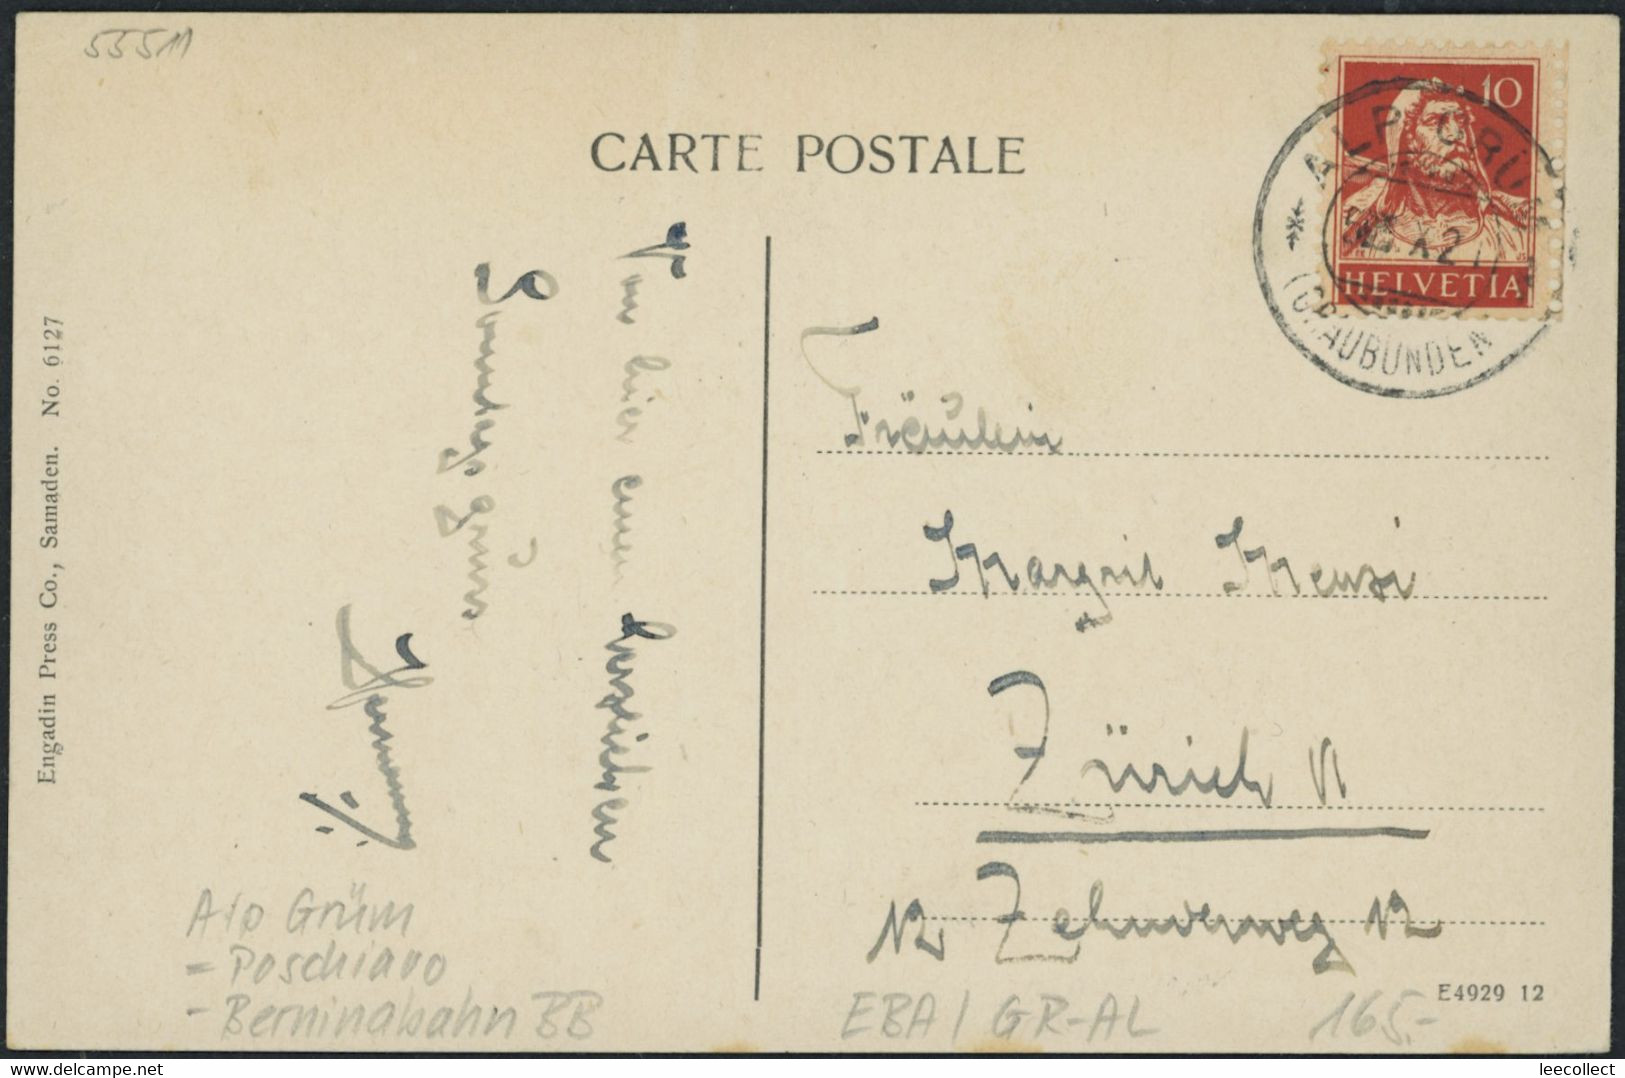 55511
CARTE POSTALE
10
HELVETIA
ALP GRÜM
X.2
(GRAUBÜNDEN)
Engadin Press Co., Samaden. No. 6127
Von hier einen herzlichen
Sonntagsgruss
Fräulein
Margrit
Zürich
12
12
Alp Grüm
- Poschiavo
- Berninabahn BB
EBA / GR-AL
165.-
E4929 12
© www.delcampe.net
leecollect